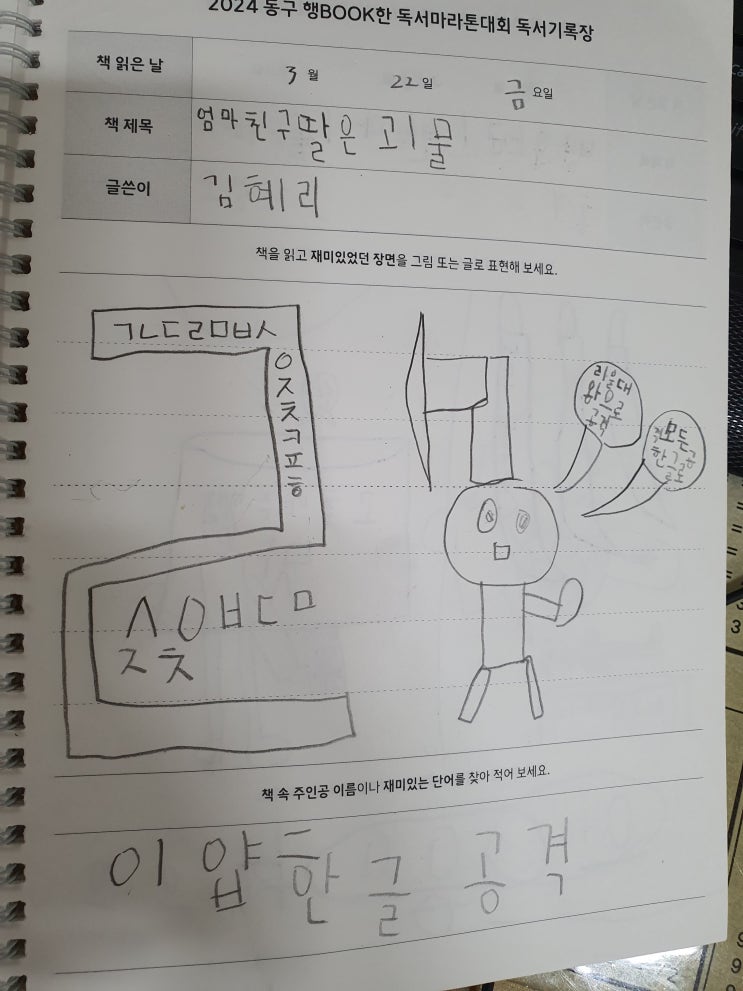 2024 동구 행BOOK한 독서마라톤대회 독서기록장
책 읽은 날 3 월 22 일 금 요일
책 제목 엄마친구딸은 괴물
글쓴이 김혜리
책을 읽고 재미있었던 장면을 그림 또는 글로 표현해 보세요.
ㄱㄴㄷㄹㅁㅂㅅ
ㅇ
ㅈ
ㅊ
ㅋ
ㅍ
ㅎ
ㅅㅇㅂㄷㅁ
ㅈㅊ
공격
모든
한글로
책 속 주인공 이름이나 재미있는 단어를 찾아 적어 보세요.
이얍 한글 공격